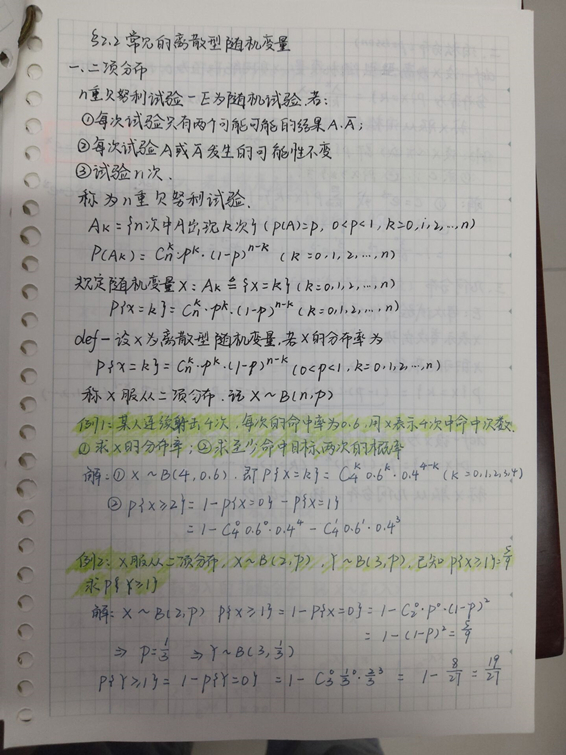 §2.2 常见的离散型随机变量
一.二项分布
n重贝努利试验-E为随机试验.若:
①每次试验只有两个可能可能的结果A.Ā;
②每次试验A或Ā发生的可能性不变
③试验n次.
称为n重贝努利试验.
Aₖ={n次中A出现k次}(P(A)=p, 0<p<1, k=0,1,2,...,n)
P(Aₖ)=Cₙᵏ·pᵏ·(1-p)ⁿ⁻ᵏ (k=0,1,2,...,n)
规定随机变量X: Aₖ≜{X=k}(k=0,1,2,...,n)
P{X=k}=Cₙᵏ·pᵏ·(1-p)ⁿ⁻ᵏ(k=0,1,2,...,n)
def-设X为离散型随机变量.若X的分布率为
P{X=k}=Cₙᵏ·pᵏ·(1-p)ⁿ⁻ᵏ(0<p<1,k=0,1,2,...,n)
称X服从二项分布.记X~B(n,p)
例1:某人连续射击4次,每次的命中率为0.6,问X表示4次中命中次数.
①求X的分布率;②求至少命中目标两次的概率
解:①X~B(4,0.6).即P{X=k}=C₄ᵏ0.6ᵏ·0.4⁴⁻ᵏ(k=0,1,2,3,4)
②P{X≥2}=1-P{X=0}-P{X=1}
=1-C₄⁰0.6⁰·0.4⁴-C₄¹0.6¹·0.4³
例2:X服从二项分布.X~B(2,p),Y~B(3,p).已知P{X≥1}=5/9
求P{Y≥1}
解:X~B(2,p) P{X≥1}=1-P{X=0}=1-C₂⁰·p⁰·(1-p)²
=1-(1-p)²=5/9
⇒P=1/3 ⇒Y~B(3,1/3)
P{Y≥1}=1-P{Y=0}=1-C₃⁰1/3⁰·2/3³=1-8/27=19/27